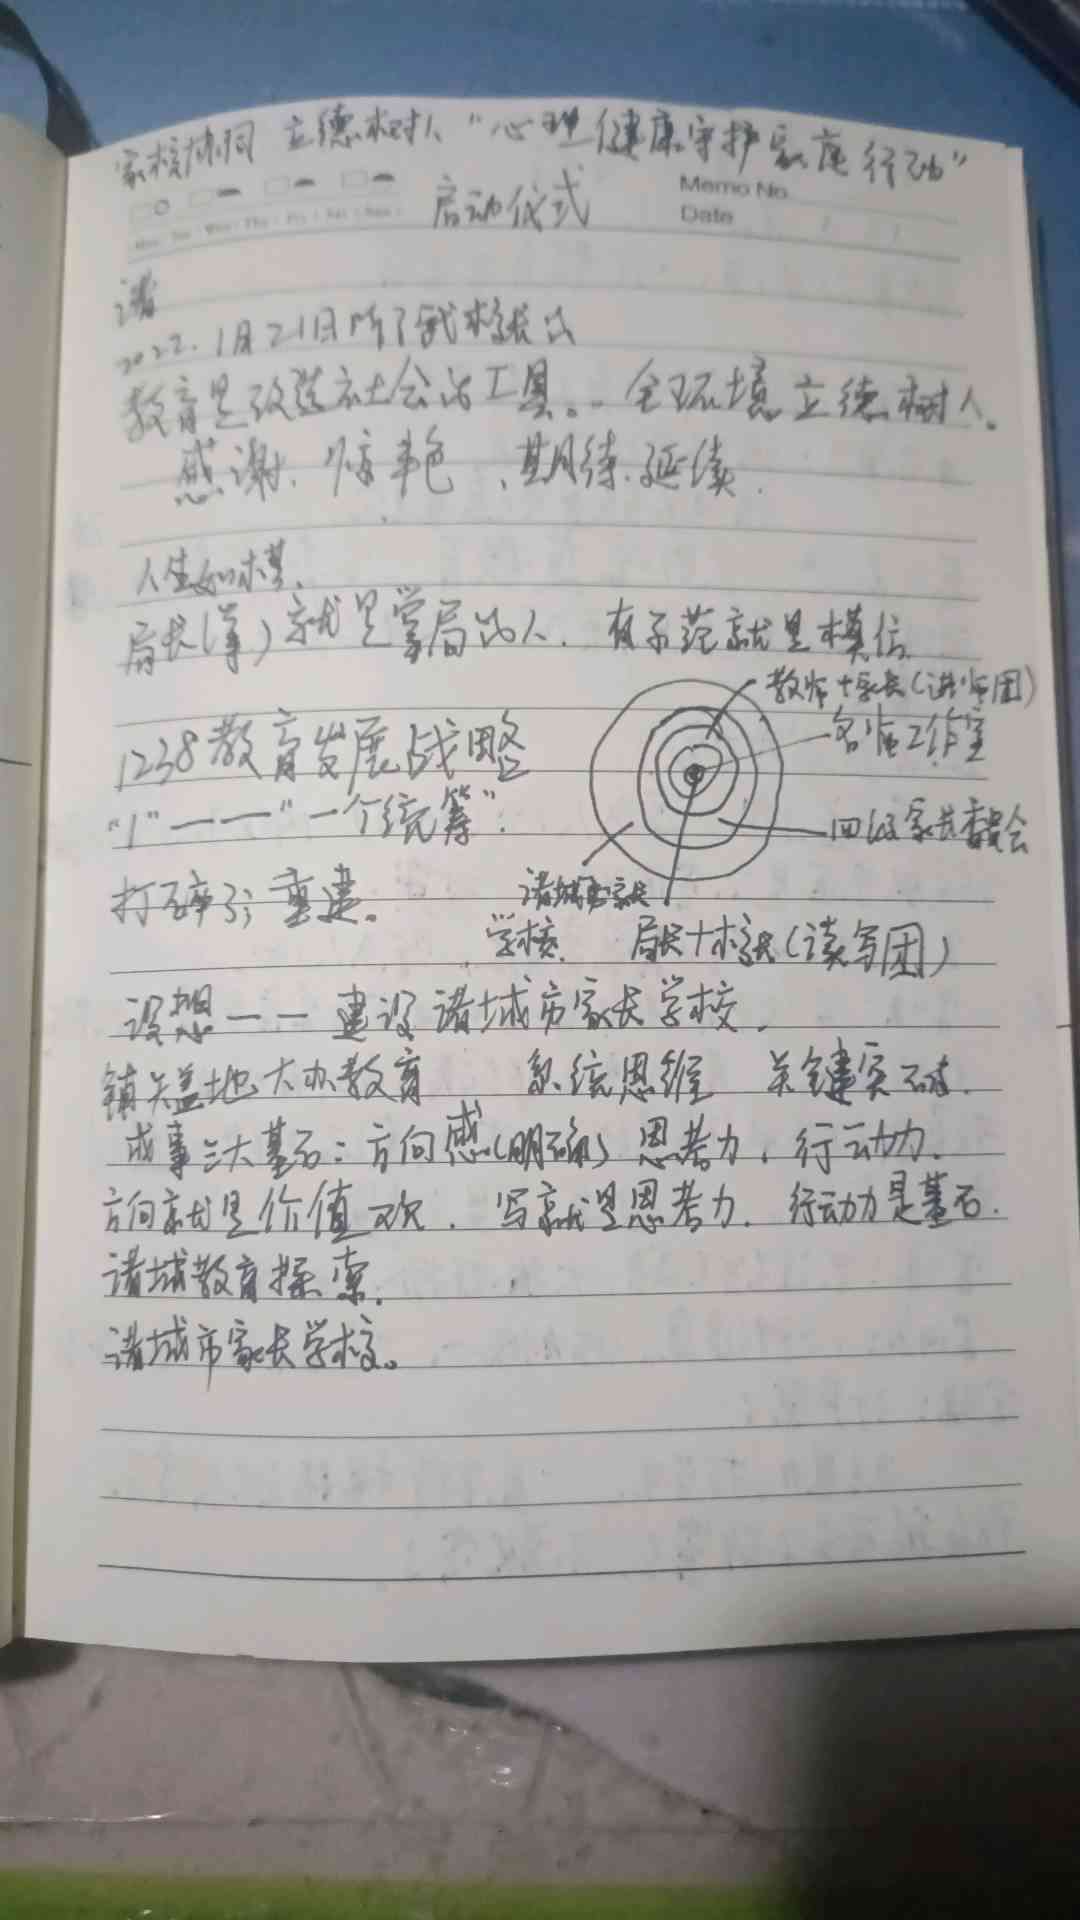 家校协同 立德树人 "心理健康守护家庭行动"
启动仪式
Memo No.
Date / /
诸
2022.1月21日听了 校长的
教育是改造社会的工具。全环境立德树人。
感谢、惊艳、期待、延续.
人生如棋.
局长(掌)就是掌局的人. 有示范就是模仿.
教师+家长(讲师团)
1238教育发展战略
名师工作室
"1"——"一个统筹".
四级家长委员会
打碎了;重建。
诸城市家长
学校.
局长+校长(读写团)
设想—— 建设诸城市家长学校.
铺天盖地大办教育 系统思维 关键突破.
成事三大基石:方向感(明确) 思考力、行动力.
方向就是价值观. 写就是思考力. 行动力是基石.
诸城教育探索.
诸城市家长学校。